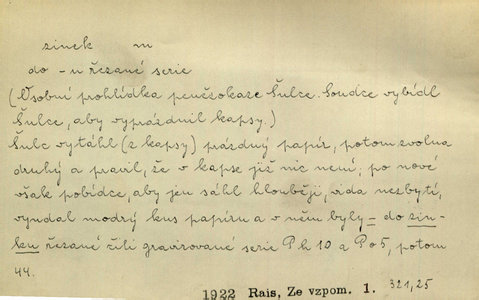 zinek m
do -u řezané serie
(Osobní prohlídka penězokaze Šulce. Soudce vybídl
Šulce, aby vyprázdnil kapsy.)
Šulc vytáhl (z kapsy) prázdný papír, potom zvolna
druhý a pravil, že v kapse již nic nemá; po nové
však pobídce, aby jen sáhl hlouběji, vida nezbytí,
vyndal modrý kus papíru a v něm byly = do zin-
ku řezané čili gravirované serie Ph 10 a Po 5, potom
44.
1922 Rais, Ze vzpom. 1. 321,25